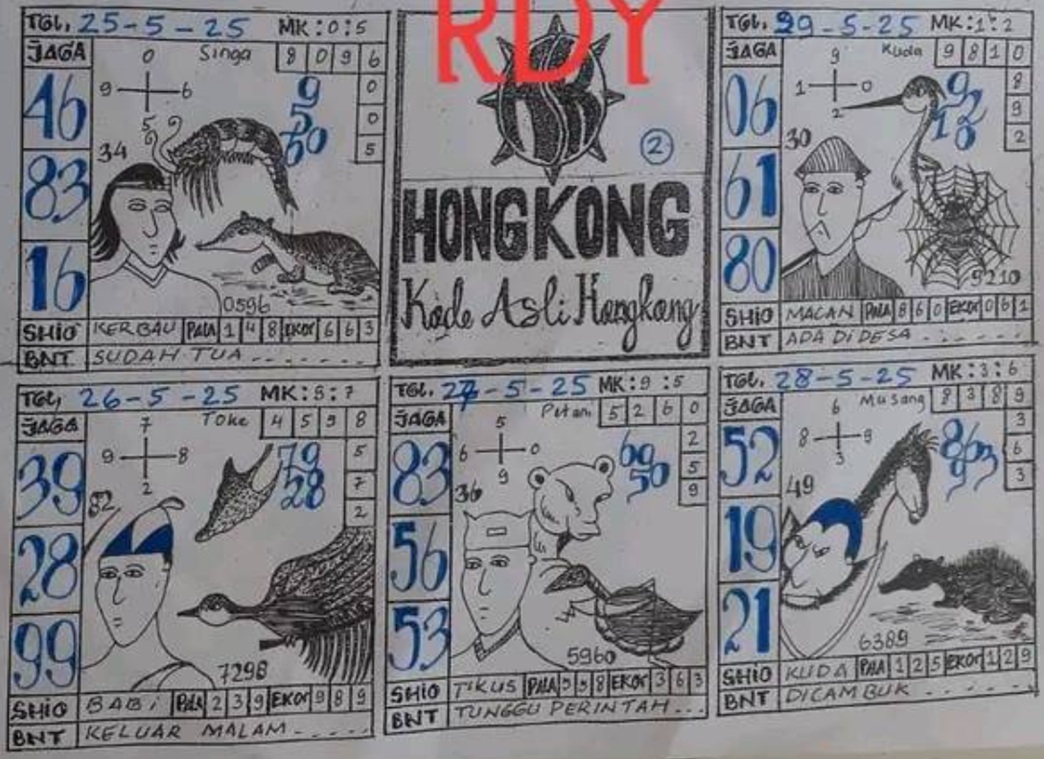 RDY
TGL, 25-5-25 MK:0:5
JAGA
Singa 8 0 9 6
0
0
5
46
83
16
0
9 6
5
9
5
60
34
0596
SHIO KERBAU PALA 1 4 8 EKOR 6 6 3
BNT SUDAH TUA......
2
HONGKONG
Kode Asli Hongkong
TGL. 29-5-25 MK:1:2
JAGA
Kuda 9 8 1 0
8
9
2
06
61
80
9
1 0
2
30
9210
SHIO MACAN PALA 8 6 0 EKOR 0 6 1
BNT ADA DI DESA......
TGL, 26-5-25 MK:5:7
JAGA
Toke 4 5 9 8
5
7
2
39
28
99
7
9 8
2
79
28
82
7298
SHIO BABI PALA 2 3 9 EKOR 9 8 9
BNT KELUAR MALAM.....
TGL. 27-5-25 MK:9:5
JAGA
Petani 5 2 6 0
2
5
9
83
56
53
5
6 0
9
69
50
36
5960
SHIO TIKUS PALA 5 9 8 EKOR 3 6 3
BNT TUNGGU PERINTAH...
TGL. 28-5-25 MK:3:6
JAGA
Musang 8 3 8 9
3
6
3
52
19
21
6
8 9
3
863
9
49
6389
SHIO KUDA PALA 1 2 5 EKOR 1 2 9
BNT DICAMBUK......